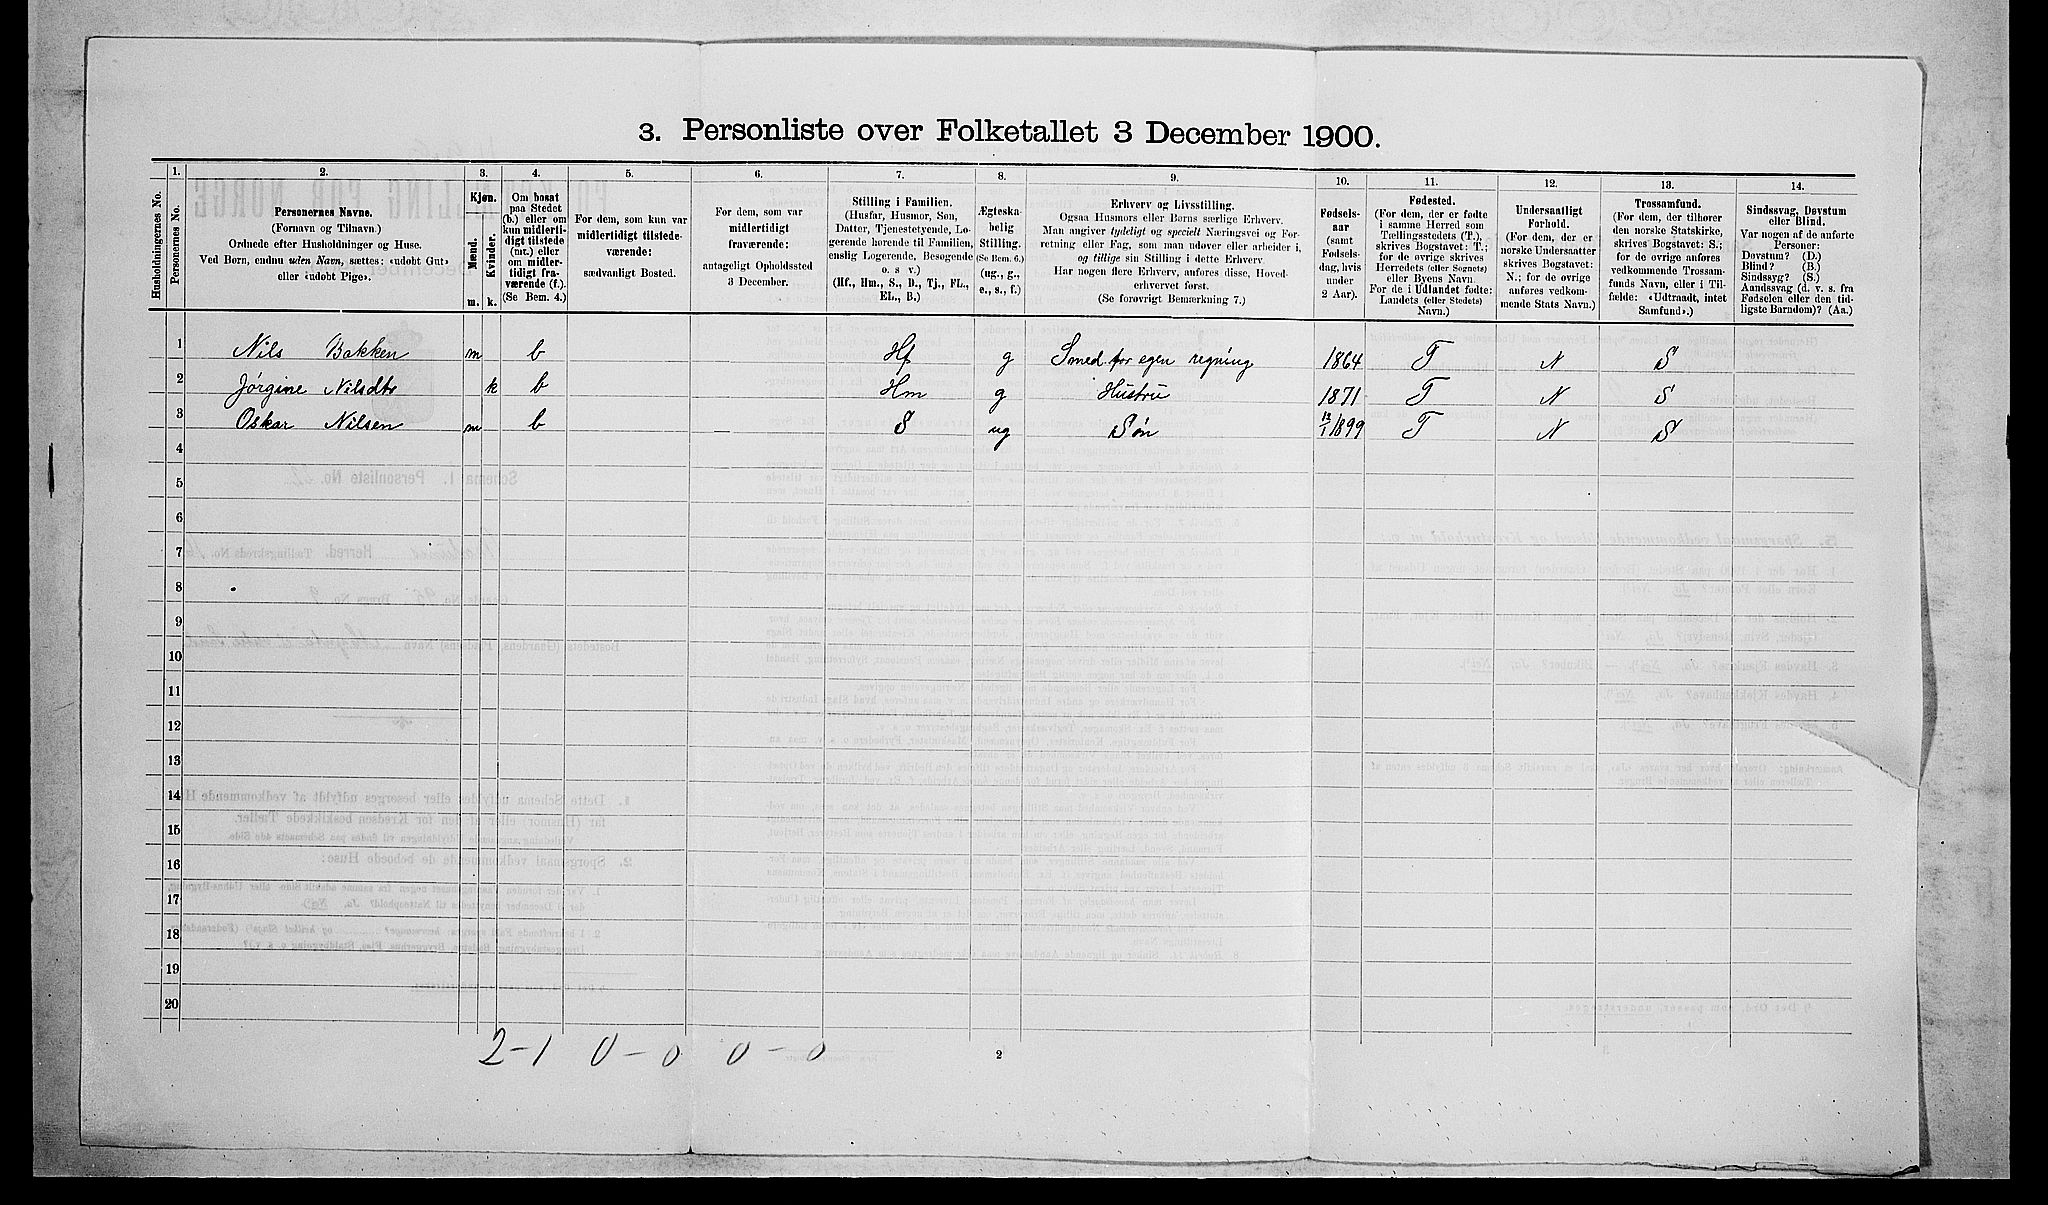 3. Personliste over Folketallet 3 December 1900.
1. 2. 3. 4. 5. 6. 7. 8. 9. 10. 11. 12. 13. 14.
Husholdningernes No.
Personernes No.
Personernes Navne.
(Fornavn og Tilnavn.)
Ordnede efter Husholdninger og Huse.
Ved Børn, endnu uden Navn, sættes: «udøbt Gut»
eller «udøbt Pige».
Kjøn.
Mænd.
Kvinder.
m. k.
Om bosat
paa Stedet
(b.) eller om
kun midlerti-
digt tilstede
(mt.) eller
om midler-
tidigt fra-
værende (f.).
(Se Bem. 4.)
For dem, som kun var
midlertidigt tilstede-
værende:
sædvanligt Bosted.
For dem, som var
midlertidigt
fraværende:
antageligt Opholdssted
3 December.
Stilling i Familien.
(Husfar, Husmor, Søn,
Datter, Tjenestetyende, Lo-
gerende hørende til Familien,
enslig Logerende, Besøgende
o. s. v.)
(Hf., Hm., S., D., Tj., FL.,
EL., B.)
Ægteska-
belig
Stilling.
(Se Bem. 6.)
(ug., g.,
e., s., f.)
Erhverv og Livsstilling.
Ogsaa Husmors eller Børns særlige Erhverv.
Man angiver tydeligt og specielt Næringsvei og For-
retning eller Fag, som man udøver eller arbeider i,
og tillige sin Stilling i dette Erhverv.
Har nogen flere Erhverv, anføres disse, Hoved-
erhvervet først.
(Se forøvrigt Bemærkning 7.)
Fødsels-
aar
(samt
Fødsels-
dag, hvis
under
2 Aar).
Fødested.
(For dem, der er fødte
i samme Herred som
Tællingsstedets (T.),
skrives Bogstavet: T.;
for de øvrige skrives
Herredets (eller Sognets)
eller Byens Navn.
For de i Udlandet fødte:
Landets (eller Stedets)
Navn.)
Undersaatligt
Forhold.
(For dem, der er
norske Undersaatter
skrives Bogstavet:
N.; for de øvrige
anføres vedkom-
mende Stats Navn.)
Trossamfund.
(For dem, der tilhører
den norske Statskirke,
skrives Bogstavet: S.;
for de øvrige anføres
vedkommende Trossam-
funds Navn, eller i Til-
fælde: «Udtraadt, intet
Samfund».)
Sindssvag, Døvstum
eller Blind.
Var nogen af de anførte
Personer:
Døvstum? (D.)
Blind? (B.)
Sindssyg? (S.)
Aandssvag (d. v. s. fra
Fødselen eller den tid-
ligste Barndom)? (Aa.)
1 Nils Bakken m b Hf g Smed for egen regning 1864 T N S
2 Jørgine Nilsdtr k b Hm g Hustru 1871 T N S
3 Oskar Nilsen m b – S ug Søn 12/1 1899 T N S
4
5
6
7
8
9
10
11
12
13
14
15
16
17
18
19
20
2 - 1 0 - 0 0 - 0
2